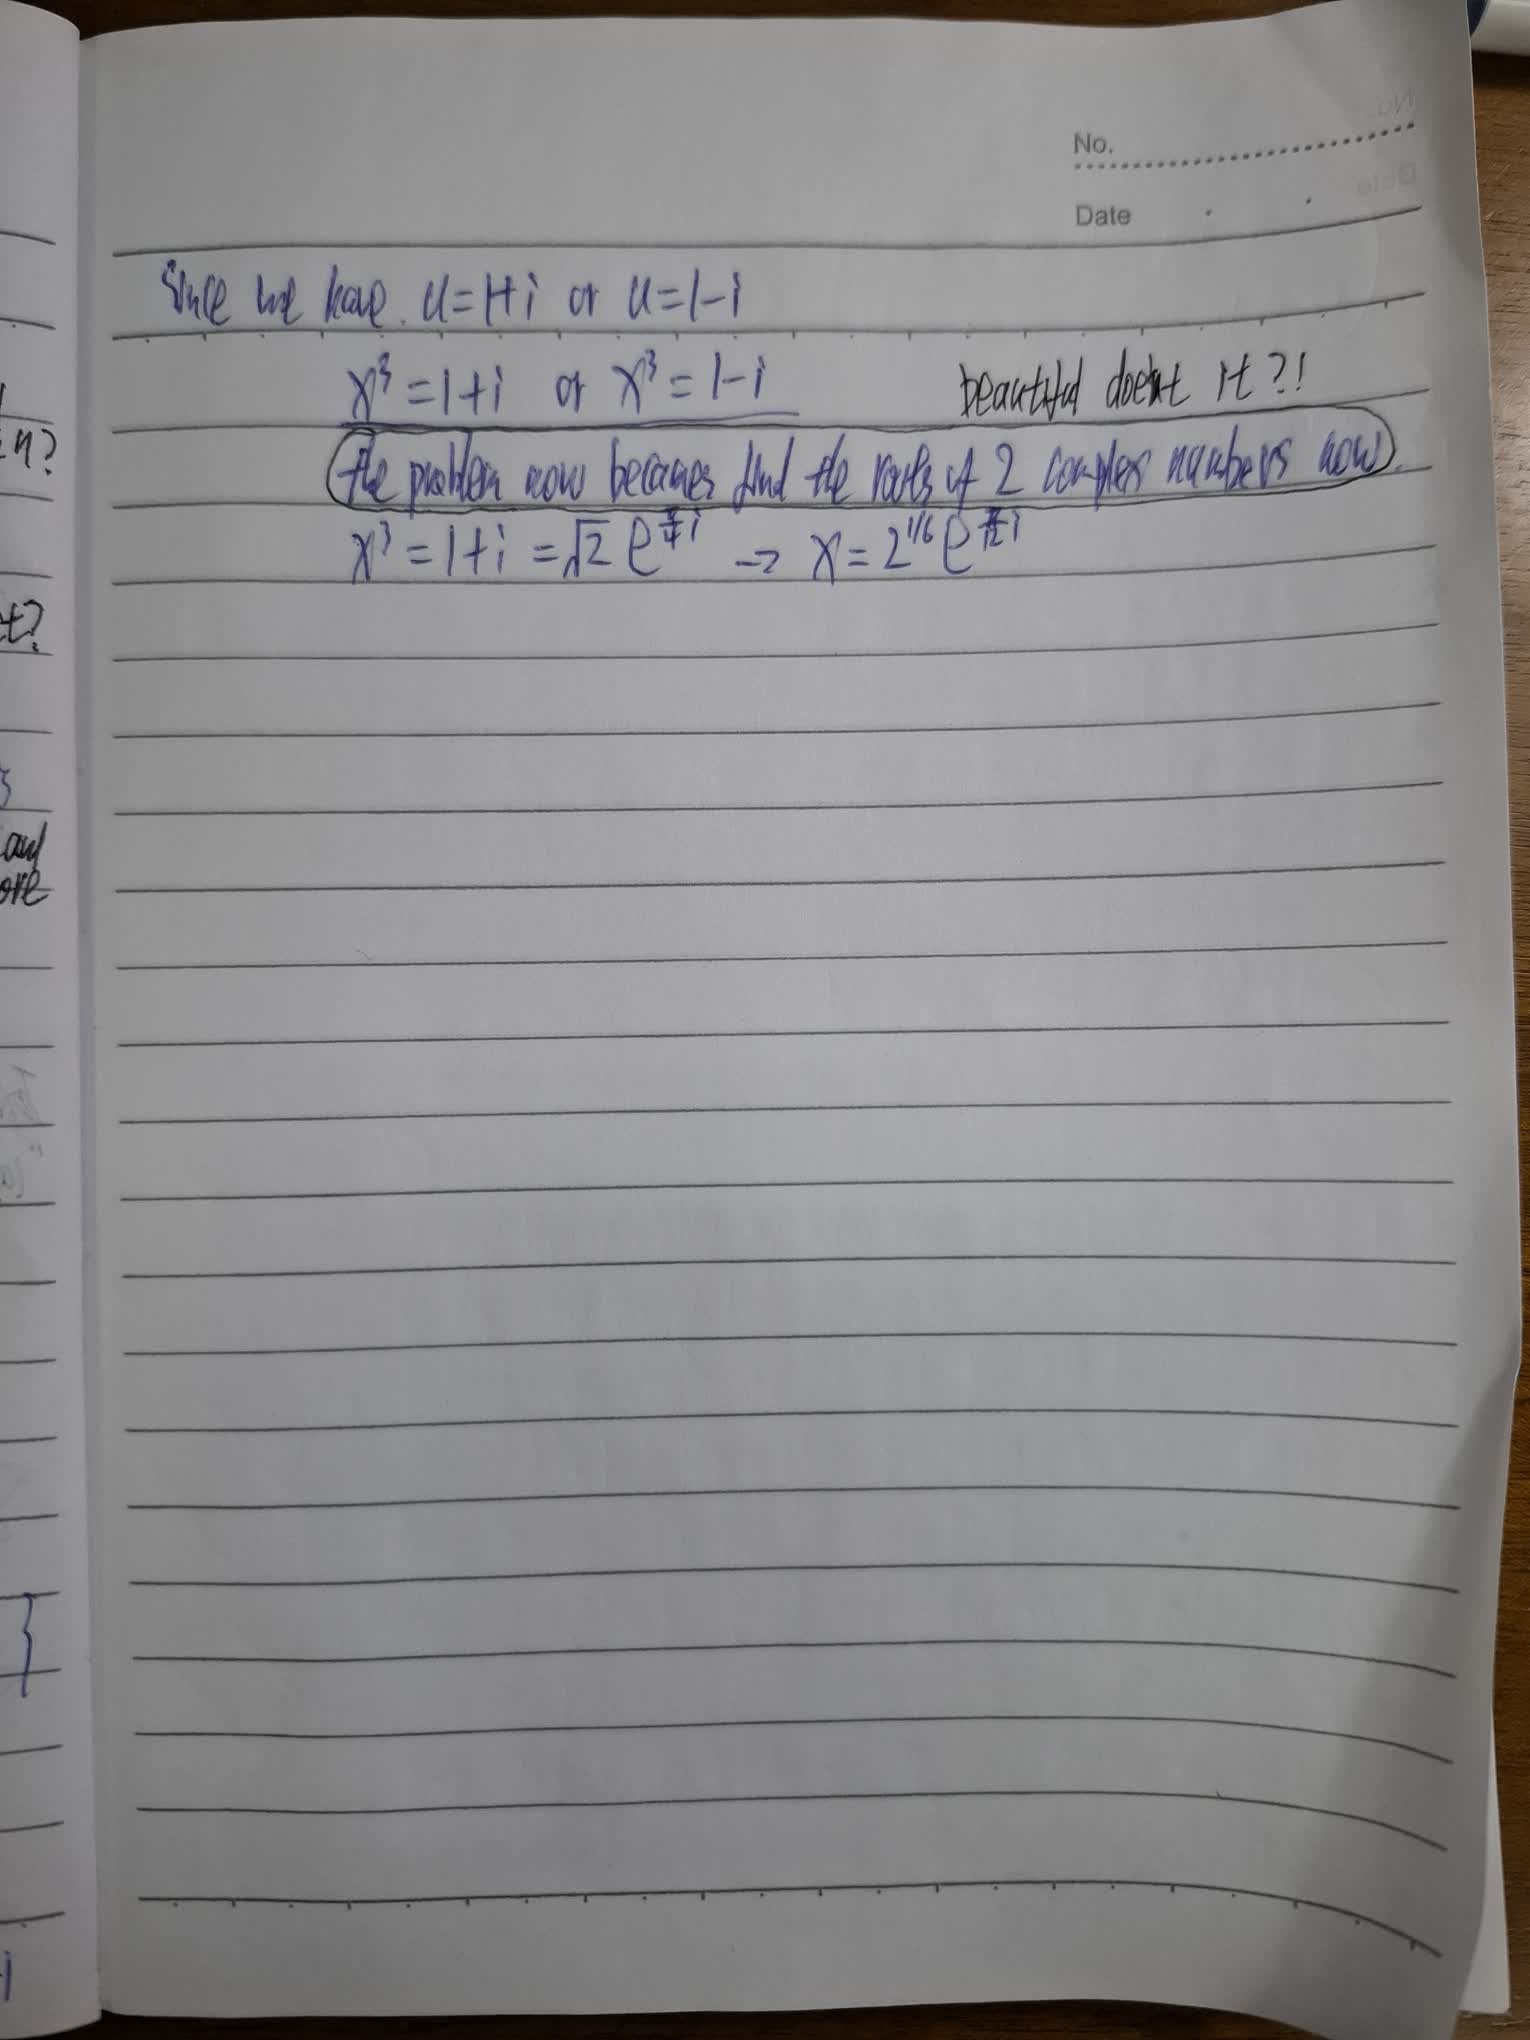 No.
Date
Since we have. u=1+i or u=1-i
x³ = 1+i or x³ = 1-i
beautiful doesn't it?!
the problem now becomes find the roots of 2 complex numbers now.
x³ = 1+i = √2 e^{π/4 i} → x = 2^{1/6} e^{π/12 i}
n?
t?
3
and
ore
}
i